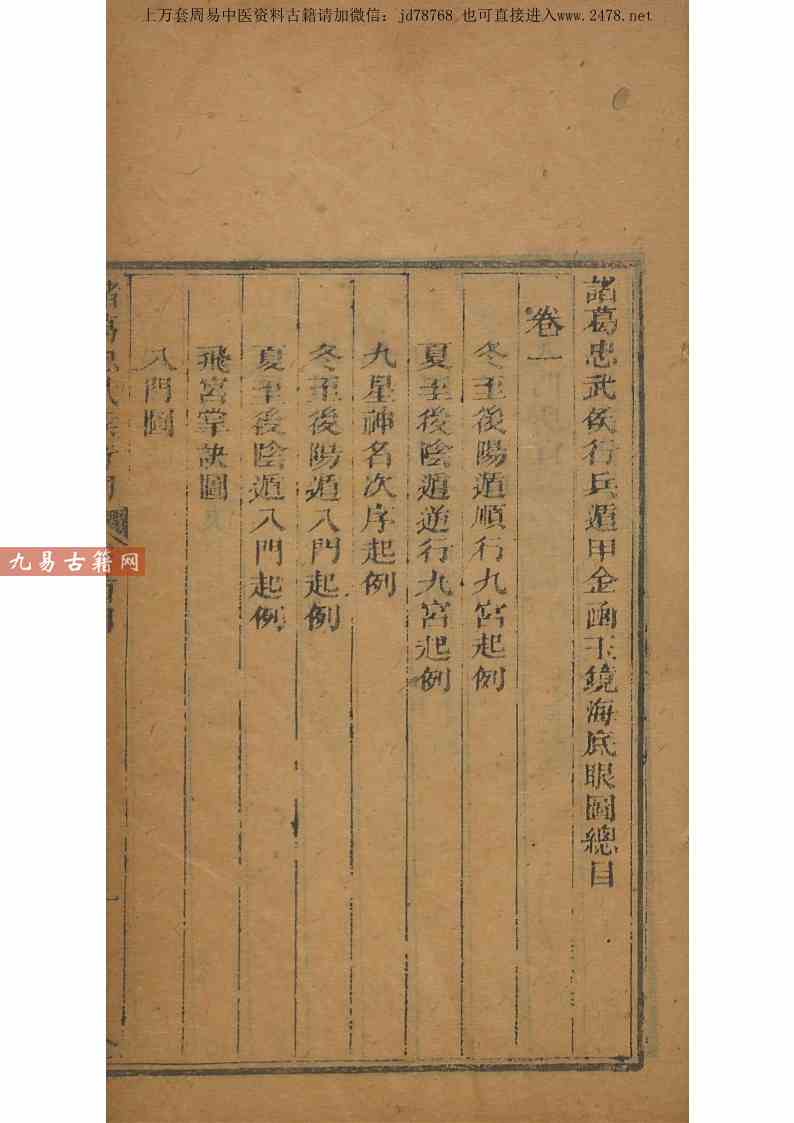 上万套周易中医资料古籍请加微信：jd78768 也可直接进入www.2478.net
諸葛忠武侯行兵遁甲金函玉鏡海底眼圖總目
卷一
冬至後陽遁順行九宮起例
夏至後陰遁逆行九宮起例
九星神名次序起例
冬至後陽遁八門起例
夏至後陰遁八門起例
飛宮掌訣圖
八門圖
九易古籍网